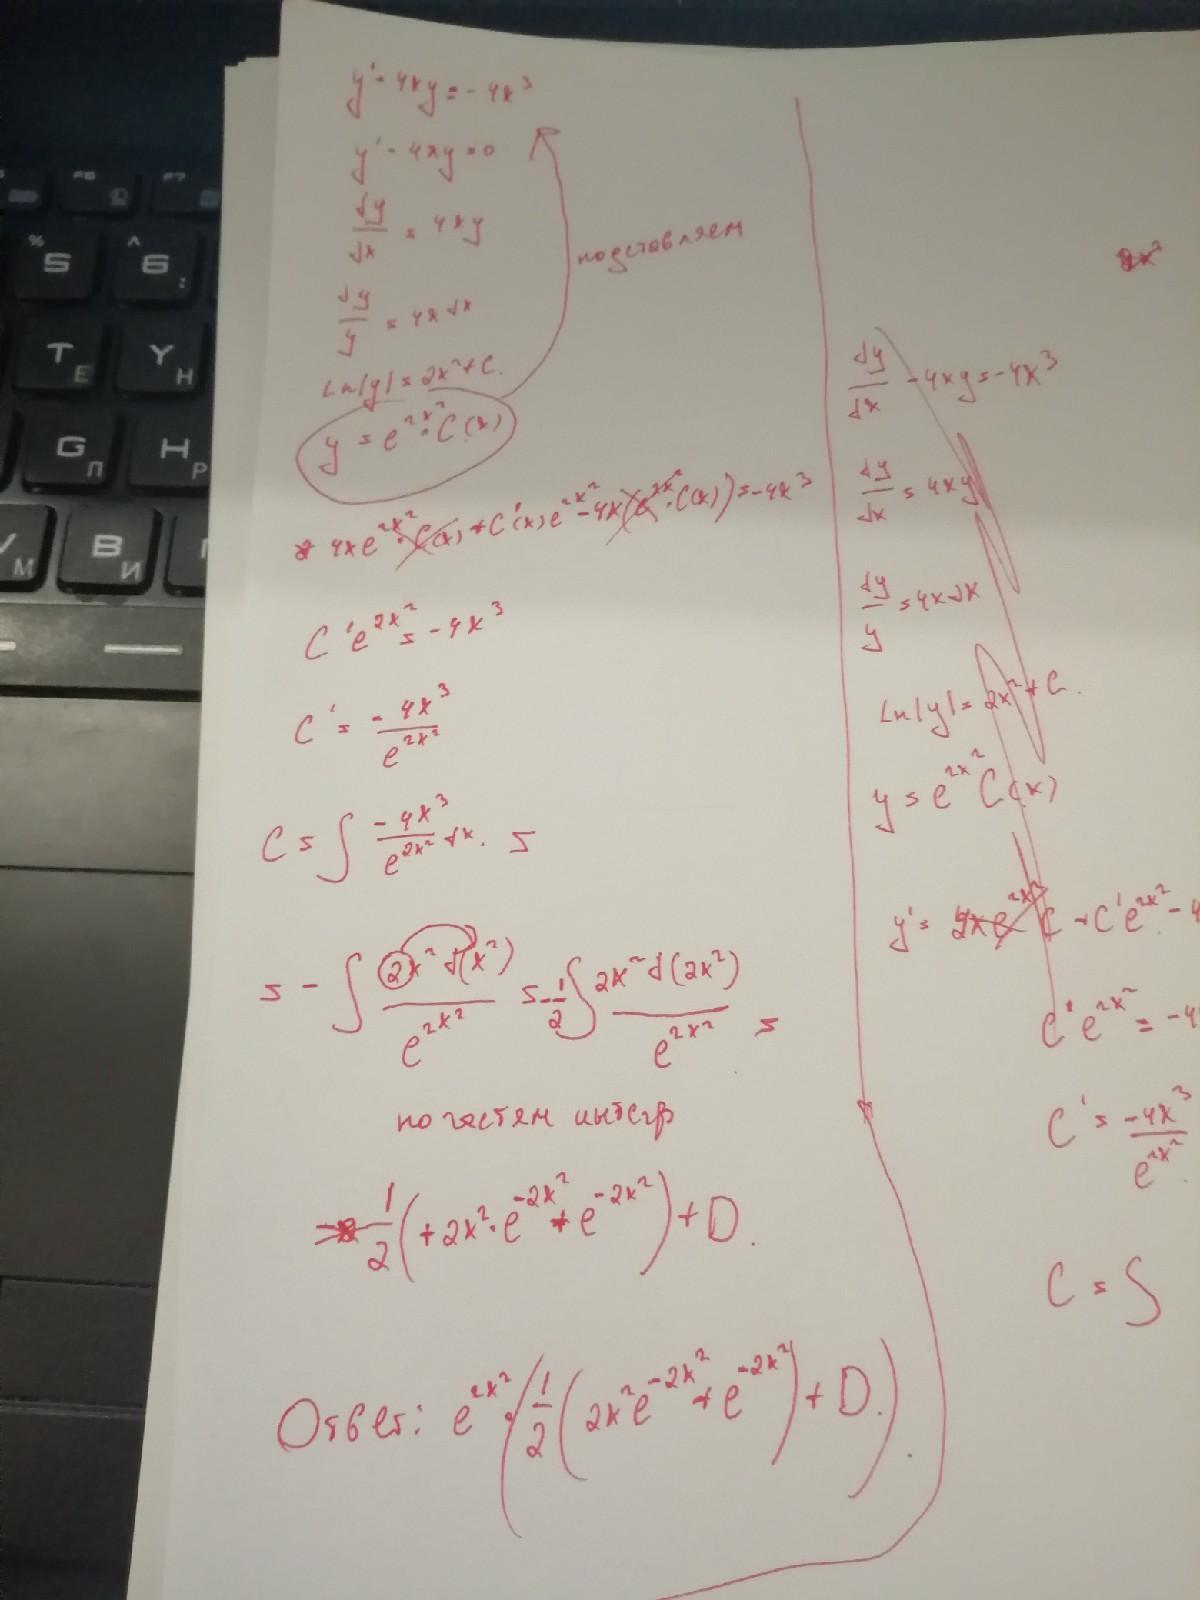 y' - 4xy = -4x³
y' - 4xy = 0
dy/dx = 4xy
подставляем
dy/y = 4x dx
Ln|y| = 2x² + C.
y = e^{2x²} · C(x)
4xe^{2x²} · C(x) + C'(x)e^{2x²} - 4x(e^{2x²} · C(x)) = -4x³
C'e^{2x²} = -4x³
C' = -4x³/e^{2x²}
C = ∫ -4x³/e^{2x²} dx. =
= - ∫ 2x² d(x²)/e^{2x²} = -1/2 ∫ 2x² d(2x²)/e^{2x²} =
по частям интегр
= 1/2 (+2x² · e^{-2x²} + e^{-2x²}) + D.
Ответ: e^{2x²} · (1/2 (2x²e^{-2x²} + e^{-2x²}) + D.).
2x²
dy/dx - 4xy = -4x³
dy/dx = 4xy
dy/y = 4x dx
Ln|y| = 2x² + C.
y = e^{2x²} C(x)
y' = 4xe^{2x²} C + C'e^{2x²} - 4
C'e^{2x²} = -4
C' = -4x³/e^{2x²}
C = ∫
% 5
^ 6 :
F6
F7
Т Е
Y Н
G П
H Р
М
B И